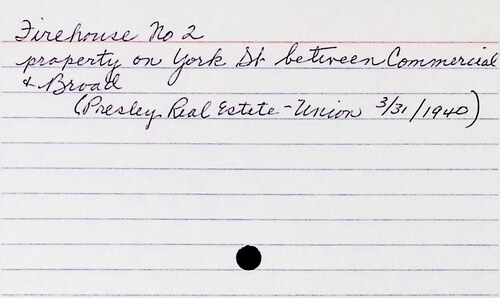 Firehouse No 2
property on York St between Commercial
& Broad
(Presley Real Estete - Union 3/31/1940)